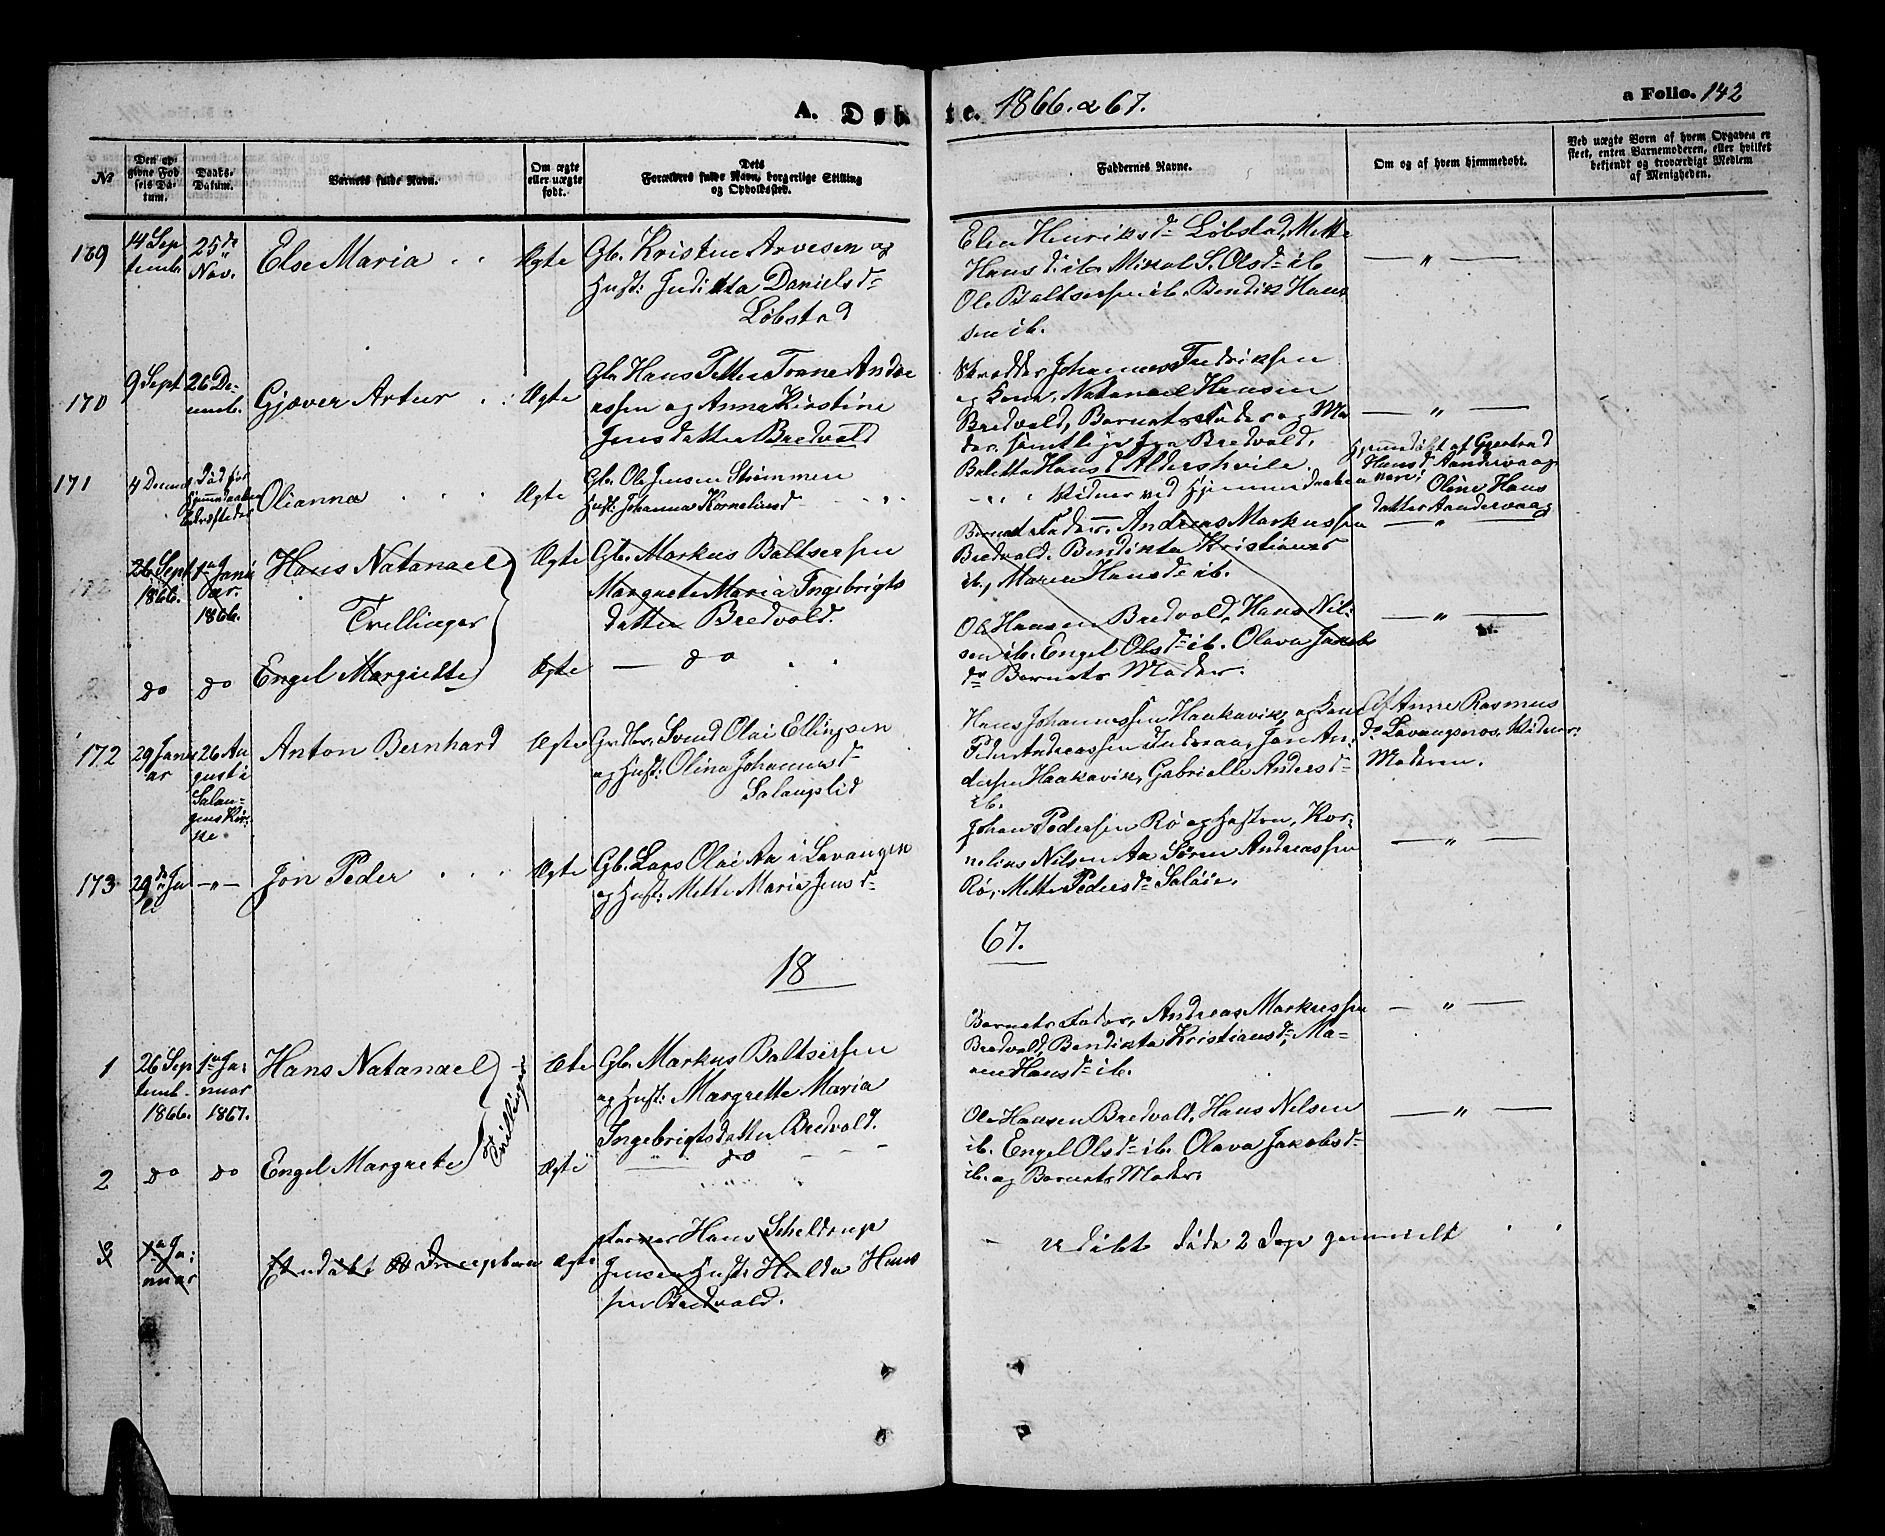 A. Døbte. 1866 & 67.
a Folio. 142
No
Den opgivne Fødsels Datum.
Daabs-Datum.
Barnets fulde Navn.
Om ægte eller uægte født.
Dets Forældres fulde Navn, borgerlige Stilling og Opholdssted.
Faddernes Navne.
Om og af hvem hjemmedøbt.
Ved uægte Børn af hvem Opgaven er skeet, enten Barnemoderen, eller hvilket bekjendt og troværdigt Medlem af Menigheden.
169
14 Sep
temb.
25de
Nov.
Else Maria
Ægte
Gb. Kristen Arvesen og
Hust: Juditta Daniels d-
Løbstad
Elen Henriks d- Løbstad, Mette
Hans d- ib. Mikal S. Ols d- ib
Ole Baltsersen ib. Bendik Han
sen ib.
— " —
170
9 Sept
26 De-
cemb.
Gjæver Artur
Ægte
Gbr Hans Petter Trane Andre
assen og Anna Kirstine
Jensdatter Bredvold
Skrædder Johannes Fredriksen
og Kone, Natanael Hansen
Bredvold, Barnets Fader og Mo
der, samtlige fra Bredvold.
— " —
171
4 Decemb
Død før
Hjemmedaaben
bekræftedes
Olianna
Ægte
Gbr. Ole Jensen Strømmen
Hust: Johanna Kornelius d-
Baletta Hans d Aldershvile.
Vidner ved Hjemmedaaben vare:
Hjemmedøbt af Gjertrud
Hans d. Aandervaag
Oline Hans
datter Aandervaag
172
26 Sept
1866.
1ste Janu
ar.
1866.
Hans Natanael
Tvillinger
Ægte
Gbr. Markus Baltsersen
Margrete Maria Ingebrigts
datter Bredvold.
Barnets Fader, Andreas Markussen
Bredvold. Bendikta Kristians
ib., Maren Hans d- ib.
— " —
do
do
Engel Margrette
Ægte
— do
Ole Hansen Bredvold, Hans Nil-
sen ib. Engel Ols d- ib. Olava Jakobs
d- Barnets Moder.
— " —
172
29 Janu
ar
26 Au
gust i
Salan-
gens Kir-
ke
Anton Bernhard
Ægte
Grdbr. Svend Olai Ellingsen
og Hust: Olina Johannes d-
Salangslid
Hans Johannessen Haakavik og Kone
Peder Andreassen Indraa, Jon An-
dersen Haakavik, Gabrielle Anders d-
ib.
Af Anne Rasmus
d- Lavangsnæs. Vidner:
Moderen.
173
29de Ju
li
— " —
Jon Peder
Ægte
Gb. Lars Olai Aa i Lavangen
og Hust: Mette Maria Jens d-
Johan Pedersen Rø og Hustru, Kor-
nelius Nilsen Aa Søren Andreassen
Rø, Mette Peders d-
— " —
18 67.
1
26 Sep
temb.
1866.
1ste Ja-
nuar
1867.
Hans Natanael
Tvillinger
Æte
Gb. Markus Baltsersen
og Hust: Margrette Maria
Ingebrigtsdatter Bredvold.
Barnets Fader, Andreas Markussen
Bredvold, Bendikta Kristians d-, Ma-
ren Hans d- ib.
— " —
2
do
do
Engel Margrete
Ægte
do
Ole Hansen Bredvold, Hans Nilsen
ib. Engel Ols d- ib. Olava Jakobs d-
ib. og Barnets Moder.
— " —
3
1ste Ja-
nuar
Et udøbt Drengebarn
Ægte
Hans Scheldrup
Jensen Hust: Hulda Hans
Bredvold.
Udøbt døde 2 Dage gammelt